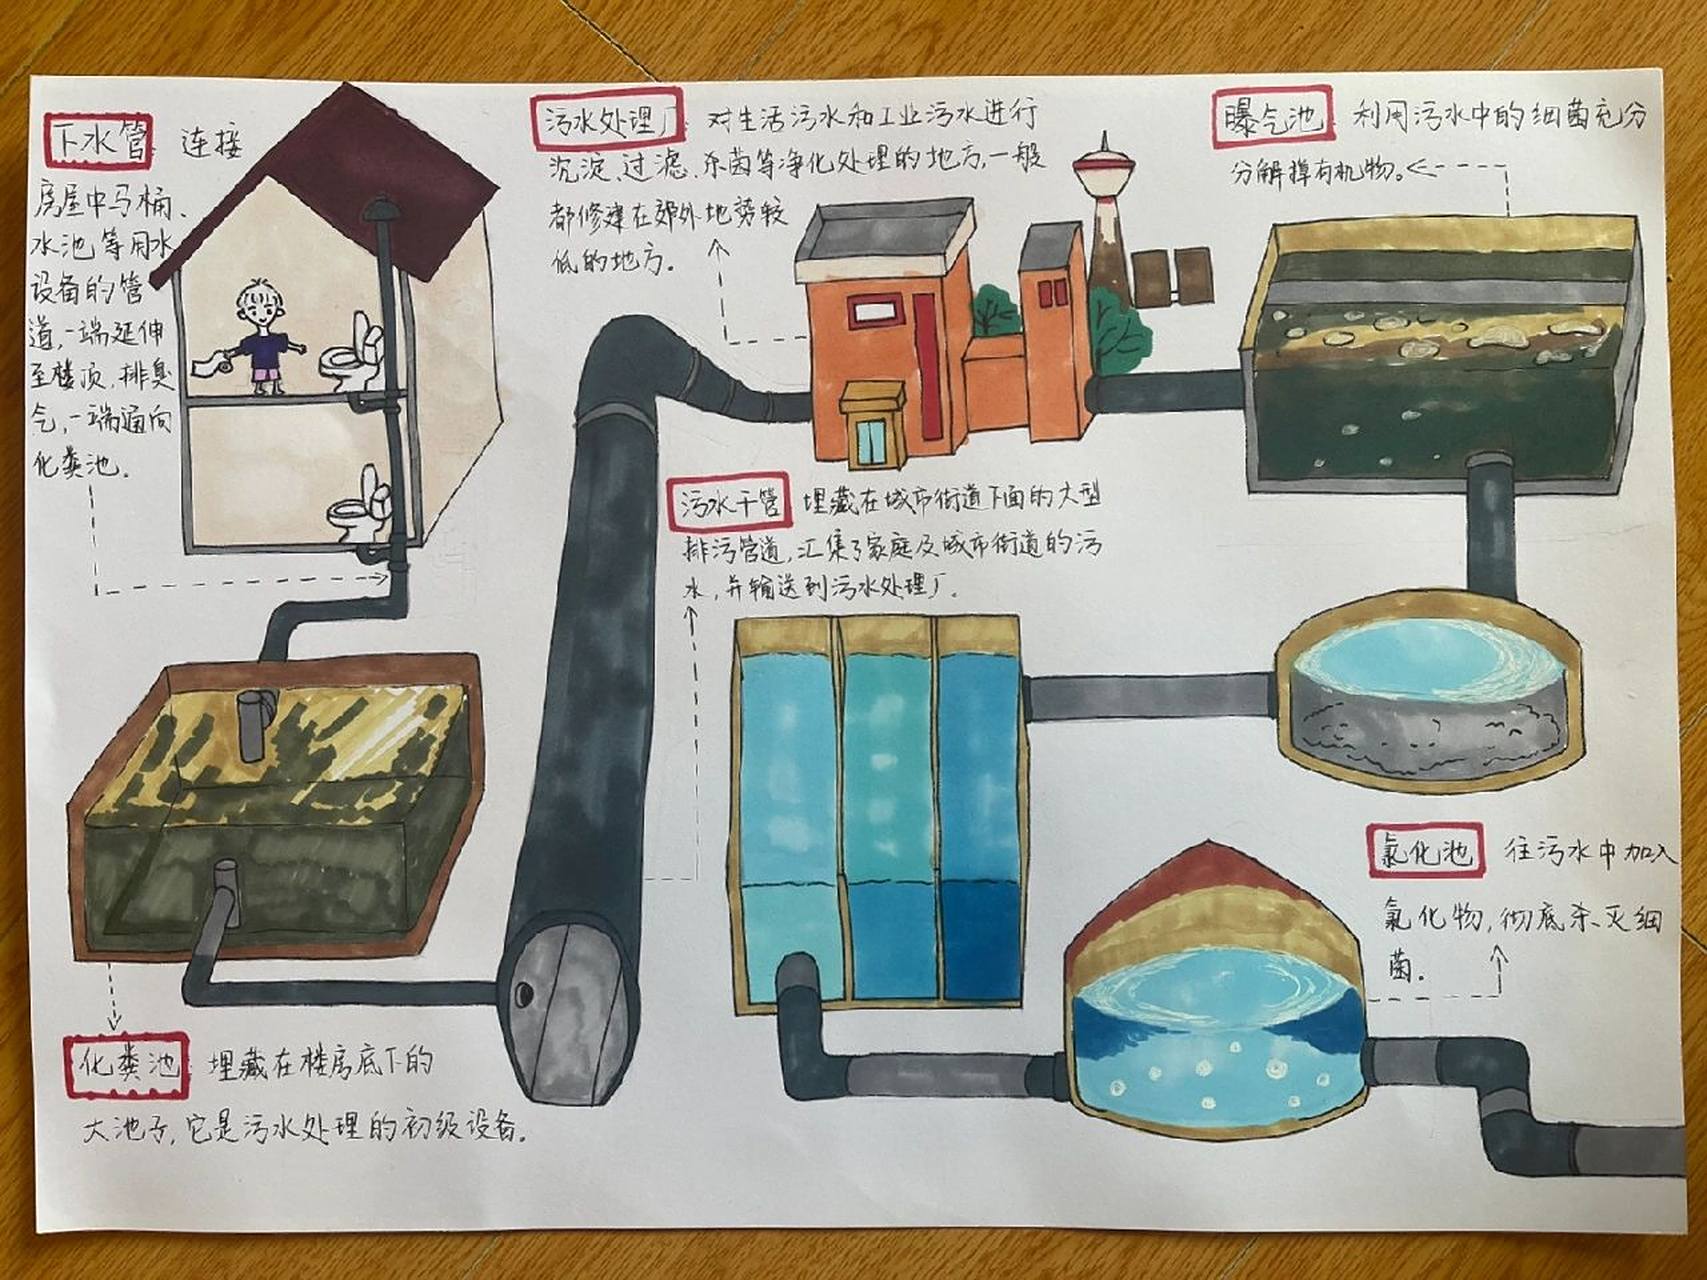 下水管 连接
房屋中马桶、
水池等用水
设备的管
道,一端延伸
至楼顶,排臭
气,一端通向
化粪池.
污水处理厂 对生活污水和工业污水进行
沉淀、过滤、杀菌等净化处理的地方,一般
都修建在郊外地势较
低的地方.
曝气池 利用污水中的细菌充分
分解掉有机物。
污水干管 埋藏在城市街道下面的大型
排污管道,汇集了家庭及城市街道的污
水,并输送到污水处理厂.
氯化池 往污水中加入
氯化物,彻底杀灭细
菌.
化粪池 埋藏在楼房底下的
大池子,它是污水处理的初级设备.